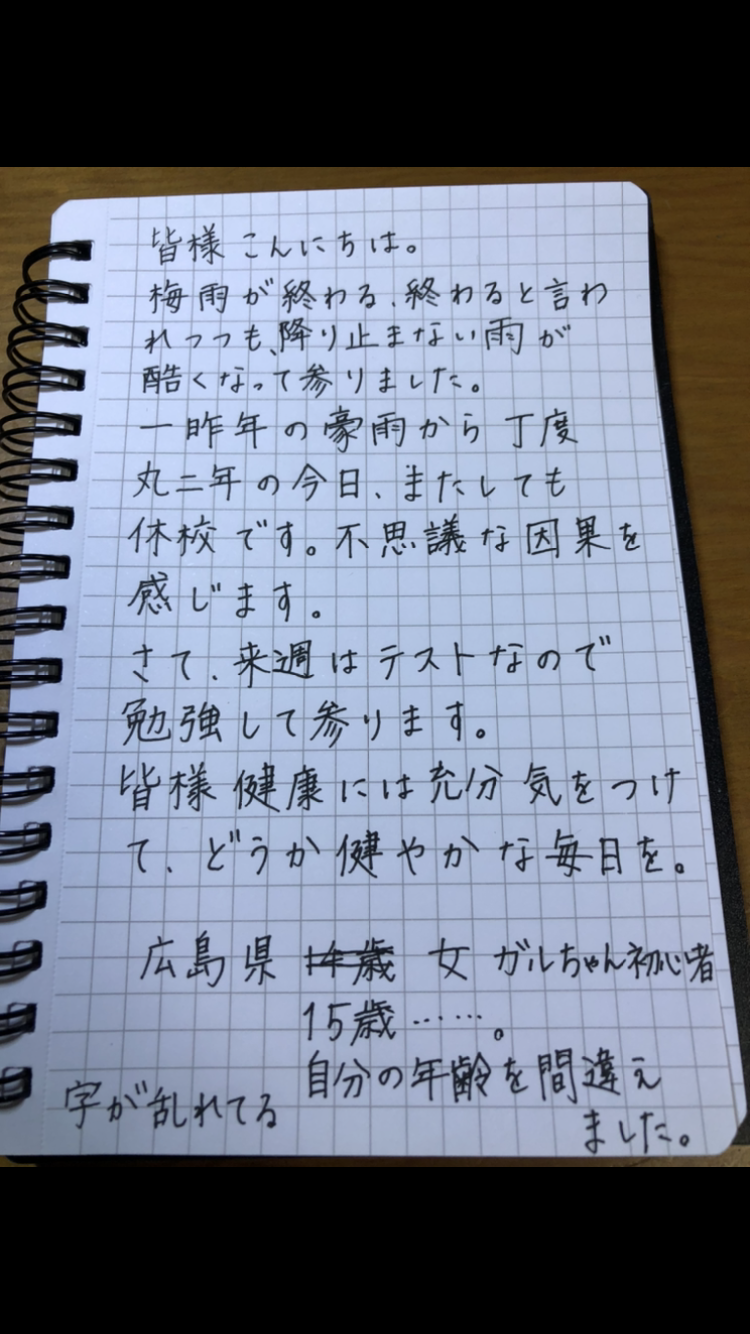 皆様こんにちは。
梅雨が終わる、終わると言わ
れつつも、降り止まない雨が
酷くなって参りました。
一昨年の豪雨から丁度
丸二年の今日、またしても
休校です。不思議な因果を
感じます。
さて、来週はテストなので
勉強して参ります。
皆様健康には充分気をつけ
て、どうか健やかな毎日を。
広島県 14歳 女 ガルちゃん初心者
15歳……。
自分の年齢を間違え
ました。
字が乱れてる